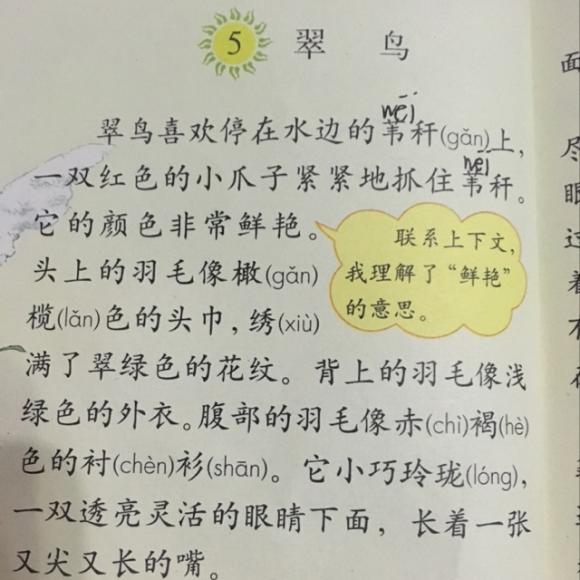 5 翠鸟
wěi
翠鸟喜欢停在水边的苇秆(gǎn)上，
wěi
一双红色的小爪子紧紧地抓住苇秆。
它的颜色非常鲜艳。
头上的羽毛像橄(gǎn)
榄(lǎn)色的头巾，绣(xiù)
满了翠绿色的花纹。背上的羽毛像浅
绿色的外衣。腹部的羽毛像赤(chì)褐(hè)
色的衬(chèn)衫(shān)。它小巧玲珑(lóng)，
一双透亮灵活的眼睛下面，长着一张
又尖又长的嘴。
联系上下文，
我理解了“鲜艳”
的意思。
面
尽
眼
过
着